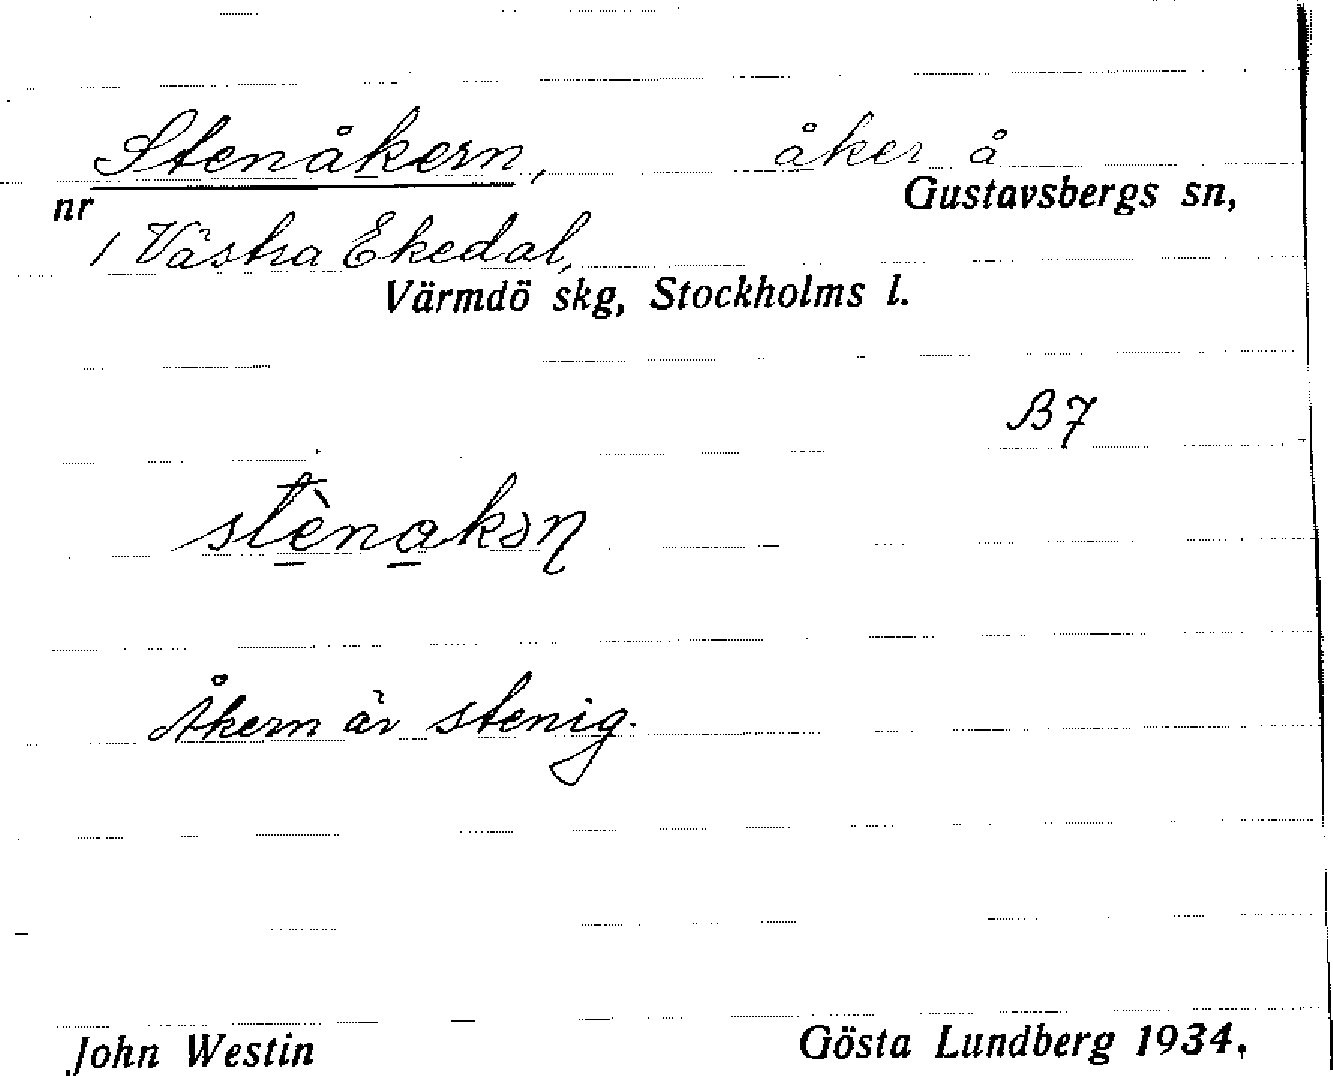 Stenåkern, åker å
Gustavsbergs sn,
nr
1 Västra Ekedal,
Värmdö skg, Stockholms l.
B7
stènakəɳ
Åkern är stenig.
John Westin Gösta Lundberg 1934.